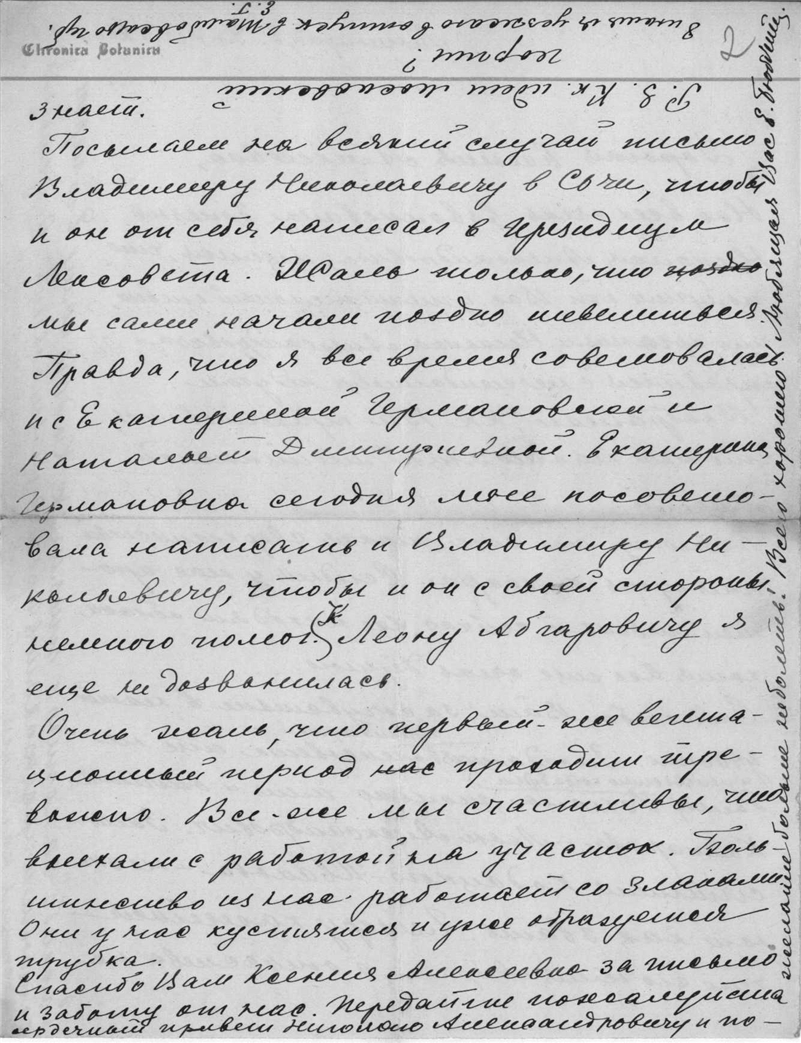 Chronica Botanica
2
знает.
Посылаем на всякий случай письмо
Владимиру Николаевичу в Сочи, чтобы
и он от себя написал в президиум
Ленсовета. Жаль только, что поздно
мы сами начали поздно шевелиться
Правда, что я все время советовалась
и с Екатериной Германовной и
Натальей Дмитриевной. Екатерина
Германовна сегодня мне посовето-
вала написать и Владимиру Ни-
колаевичу, чтобы и он с своей стороны
немного помог. К Леону Абгаровичу я
еще не дозвонилась.
Очень жаль, что первый-же вегета-
ционный период нас проходит тре-
вожно. Все-же мы счастливы, что
выехали с работой на участок. Боль
шинство из нас работает со злаками
Они у нас кустятся и уже образуется
трубка.
Спасибо Вам Ксения Алексеевна за письмо
и заботу от нас. Передайте пожалуйста
сердечный привет Николаю Александровичу и по-
желайте больше не болеть! Всего хорошего! Любящая Вас Е.
P.S. Как идет московский
георгин?
я уезжаю в отпуск в